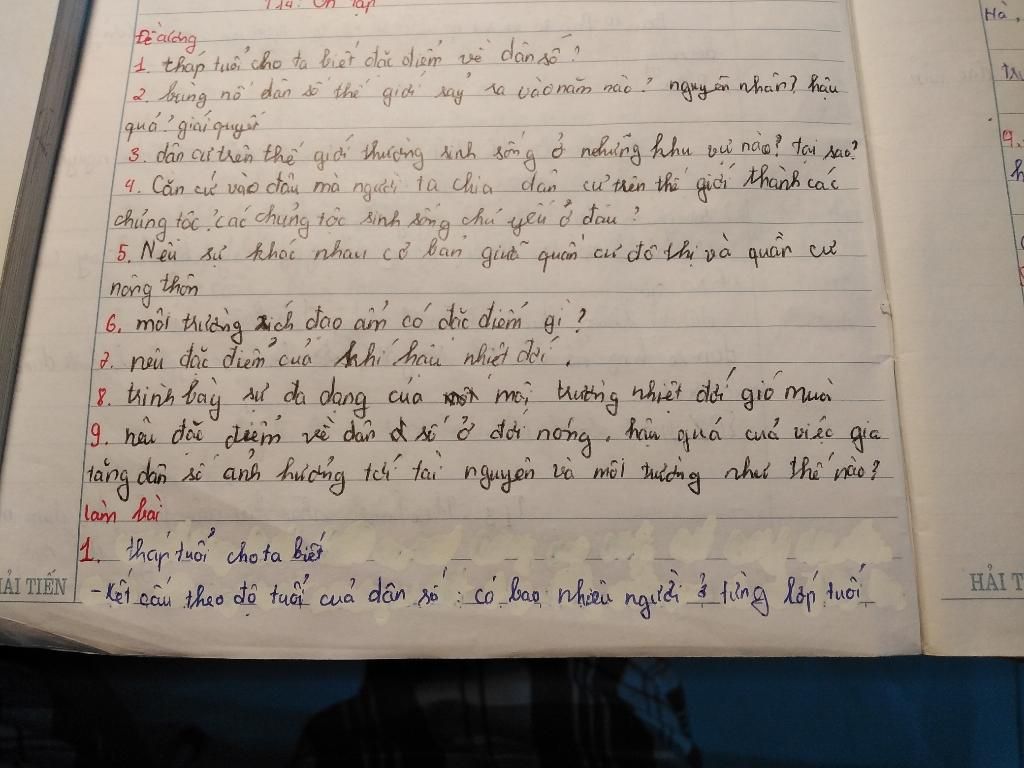 T14: Ôn tập
Đề cương
1. tháp tuổi cho ta biết đặc điểm về dân số?
2. bùng nổ dân số thế giới sảy ra vào năm nào? nguyên nhân? hậu
quả? giải quyết
3. dân cư trên thế giới thường sinh sống ở những khu vực nào? tại sao?
4. Căn cứ vào đâu mà người ta chia dân cư trên thế giới thành các
chủng tộc? các chủng tộc sinh sống chủ yếu ở đâu?
5. Nêu sự khác nhau cơ bản giữa quần cư đô thị và quần cư
nông thôn
6. môi trường xích đạo ẩm có đặc điểm gì?
7. nêu đặc điểm của khí hậu nhiệt đới.
8. trình bày sự đa dạng của môi trường nhiệt đới gió mùa
9. nêu đặc điểm về dân số ở đới nóng, hậu quả của việc gia
tăng dân số ảnh hưởng tới tài nguyên và môi trường như thế nào?
làm bài
1. tháp tuổi cho ta biết
- Kết cấu theo độ tuổi của dân số: có bao nhiêu người ở từng lớp tuổi
HẢI TIẾN
HẢI T
Hà,
9.